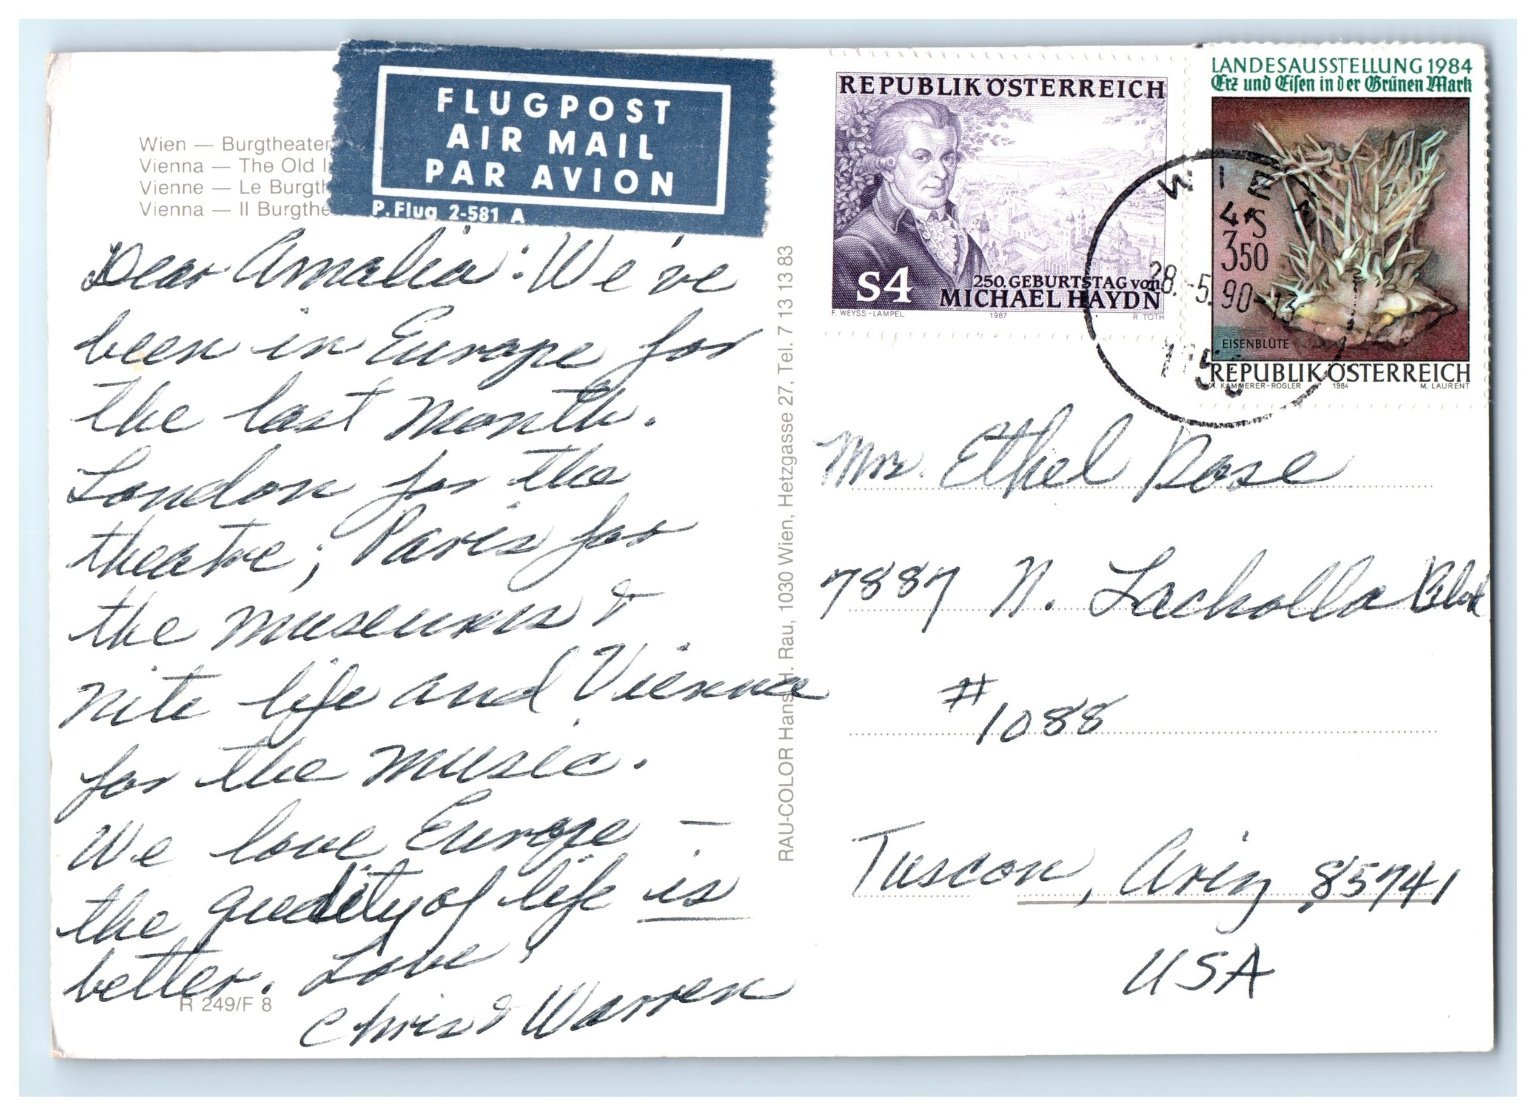 Wien — Burgtheater
Vienna — The Old I
Vienne — Le Burgth
Vienna — Il Burgthe
FLUGPOST
AIR MAIL
PAR AVION
P. Flug 2-581 A
REPUBLIK ÖSTERREICH
S4
250. GEBURTSTAG von
MICHAEL HAYDN
F. WEYSS-LAMPEL 1987 R. TOTH
LANDESAUSSTELLUNG 1984
Erz und Eisen in der Grünen Mark
4+S
350
EISENBLÜTE
REPUBLIK ÖSTERREICH
A. KAMMERER-ROGLER 1984 M. LAURENT
WIEN
28.-5.90-13
Dear Amalia: We've
been in Europe for
the last month.
London for the
theatre; Paris for
the museums &
nite life and Vienna
for the music.
We love Europe —
the quality of life is
better. Love,
Chris & Warren
R 249/F 8
RAU-COLOR Hans H. Rau, 1030 Wien, Hetzgasse 27, Tel. 7 13 13 83
Mrs. Ethel Rose
7887 N. Lacholla Blvd
#1088
Tuscon, Ariz 85741
USA